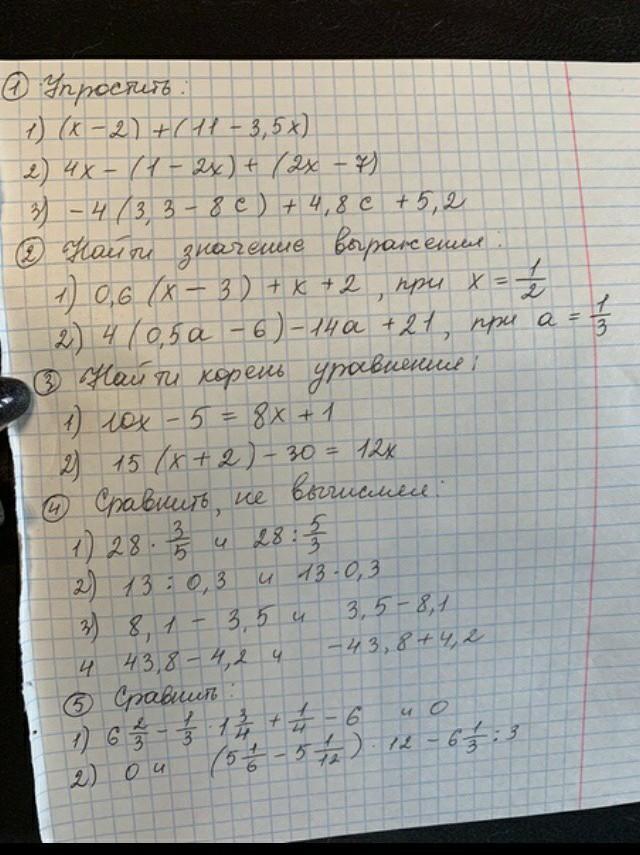 ① Упростить:
1) (x - 2) + (11 - 3,5x)
2) 4x - (1 - 2x) + (2x - 7)
3) - 4 (3,3 - 8c) + 4,8c + 5,2
② Найти значение выражения:
1) 0,6 (x - 3) + x + 2, при x = 1/2
2) 4 (0,5a - 6) - 14a + 21, при a = 1/3
③ Найти корень уравнения:
1) 10x - 5 = 8x + 1
2) 15 (x + 2) - 30 = 12x
④ Сравнить, не вычисляя:
1) 28 · 3/5 и 28 : 5/3
2) 13 : 0,3 и 13 · 0,3
3) 8,1 - 3,5 и 3,5 - 8,1
4 43,8 - 4,2 и - 43,8 + 4,2
⑤ Сравнить:
1) 6 2/3 - 1/3 · 1 3/4 + 1/4 - 6 и 0
2) 0 и (5 1/6 - 5 1/12) · 12 - 6 1/3 : 3